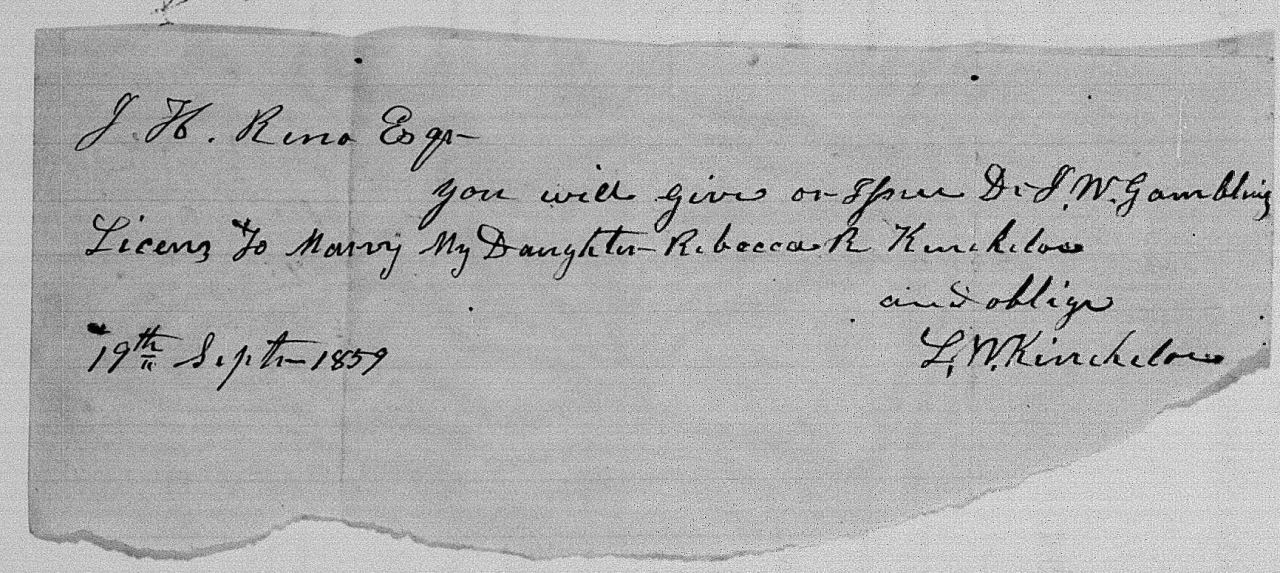 J. H. Reno Esqr
you will give or Issue Dr J. W. Gambling
Licens To Marry My Daughter Rebecca R Kincheloe
and oblige
19th Septr 1859
L. W. Kincheloe